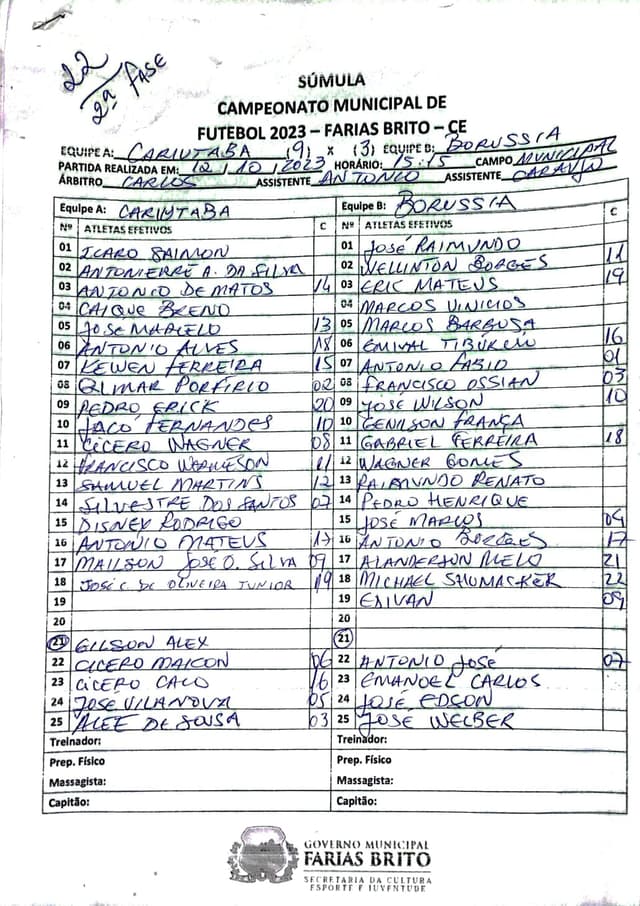 22
2ª FASE
SÚMULA
CAMPEONATO MUNICIPAL DE
FUTEBOL 2023 – FARIAS BRITO – CE
EQUIPE A: CARIUTABA (9) X (3) EQUIPE B: BORUSSIA
PARTIDA REALIZADA EM: 12/10/2023 HORÁRIO: 15:15 CAMPO MUNICIPAL
ÁRBITRO CARLOS ASSISTENTE ANTONIO ASSISTENTE
Equipe A: CARIUTABA Equipe B: BORUSSIA C
Nº ATLETAS EFETIVOS C Nº ATLETAS EFETIVOS
01 ICARO SAIMON 01 JOSÉ RAIMUNDO
02 ANTONIERRE A. DA SILVA 02 WELLINTON BORGES 11
03 ANTONIO DE MATOS 14 03 ERIC MATEUS 19
04 CAIQUE BRENO 04 MARCOS VINICIOS
05 JOSÉ MARCELO 13 05 MARCOS BARBOSA
06 ANTONIO ALVES 18 06 EMIVAL TIBÚRCIO 16
07 KEWEN FERREIRA 15 07 ANTONIO FABIO 01
08 GILMAR PORFIRIO 02 08 FRANCISCO OSSIAN 03
09 PEDRO ERICK 20 09 JOSÉ WILSON 10
10 JACÓ FERNANDES 10 10 GENILSON FRANÇA
11 CICERO WAGNER 08 11 GABRIEL FERREIRA 18
12 FRANCISCO 11 12 WAGNER GOMES
13 SAMUEL MARTINS 12 13 RAIMUNDO RENATO
14 SILVESTRE DOS SANTOS 07 14 PEDRO HENRIQUE
15 DISNEY RODRIGO 15 JOSÉ MARCOS 04
16 ANTONIO MATEUS 17 16 ANTONIO BORGES 17
17 MAILSON JOSÉ O. SILVA 09 17 ALANDERSON MELO 21
18 JOSÉ C. DE OLIVEIRA JUNIOR 19 18 MICHAEL SHUMACKER 22
19 19 ENIVAN 09
20 20
21 GILSON ALEX 21
22 CICERO MAICON 06 22 ANTONIO JOSÉ 07
23 CICERO CACO 16 23 EMANOEL CARLOS
24 JOSE VILANOVA 05 24 JOSÉ EDSON
25 ALEF DE SOUSA 03 25 JOSÉ WELBER
Treinador: Treinador:
Prep. Físico Prep. Físico
Massagista: Massagista:
Capitão: Capitão:
GOVERNO MUNICIPAL
FARIAS BRITO
SECRETARIA DA CULTURA
ESPORTE E JUVENTUDE